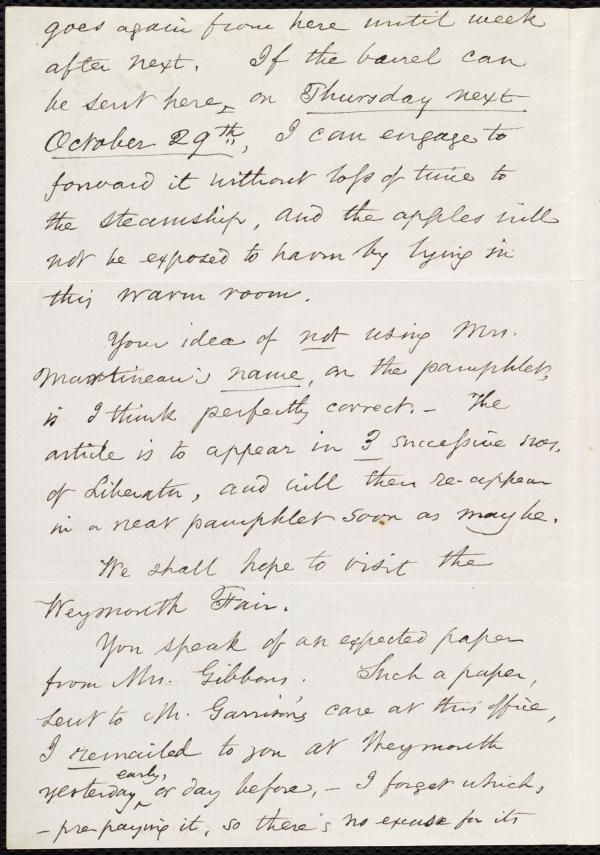 goes again from here until week
after next. If the barrel can
be sent here, on Thursday next
October 29th, I can engage to
forward it without loss of time to
the steamship, and the apples will
not be exposed to harm by lying in
this warm room.
Your idea of not using Mrs.
Martineau's name, on the pamphlet,
is I think perfectly correct. - The
article is to appear in 3 successive nos.
of Liberator, and will then re-appear
in a neat pamphlet soon as may be.
We shall hope to visit the
Weymouth Fair.
You speak of an expected paper
from Mrs. Gibbons. Such a paper,
sent to Mr. Garrison's care at this office,
I remailed to you at Weymouth
early,
yesterday, or day before, - I forget which,
- pre-paying it, so there's no excuse for its